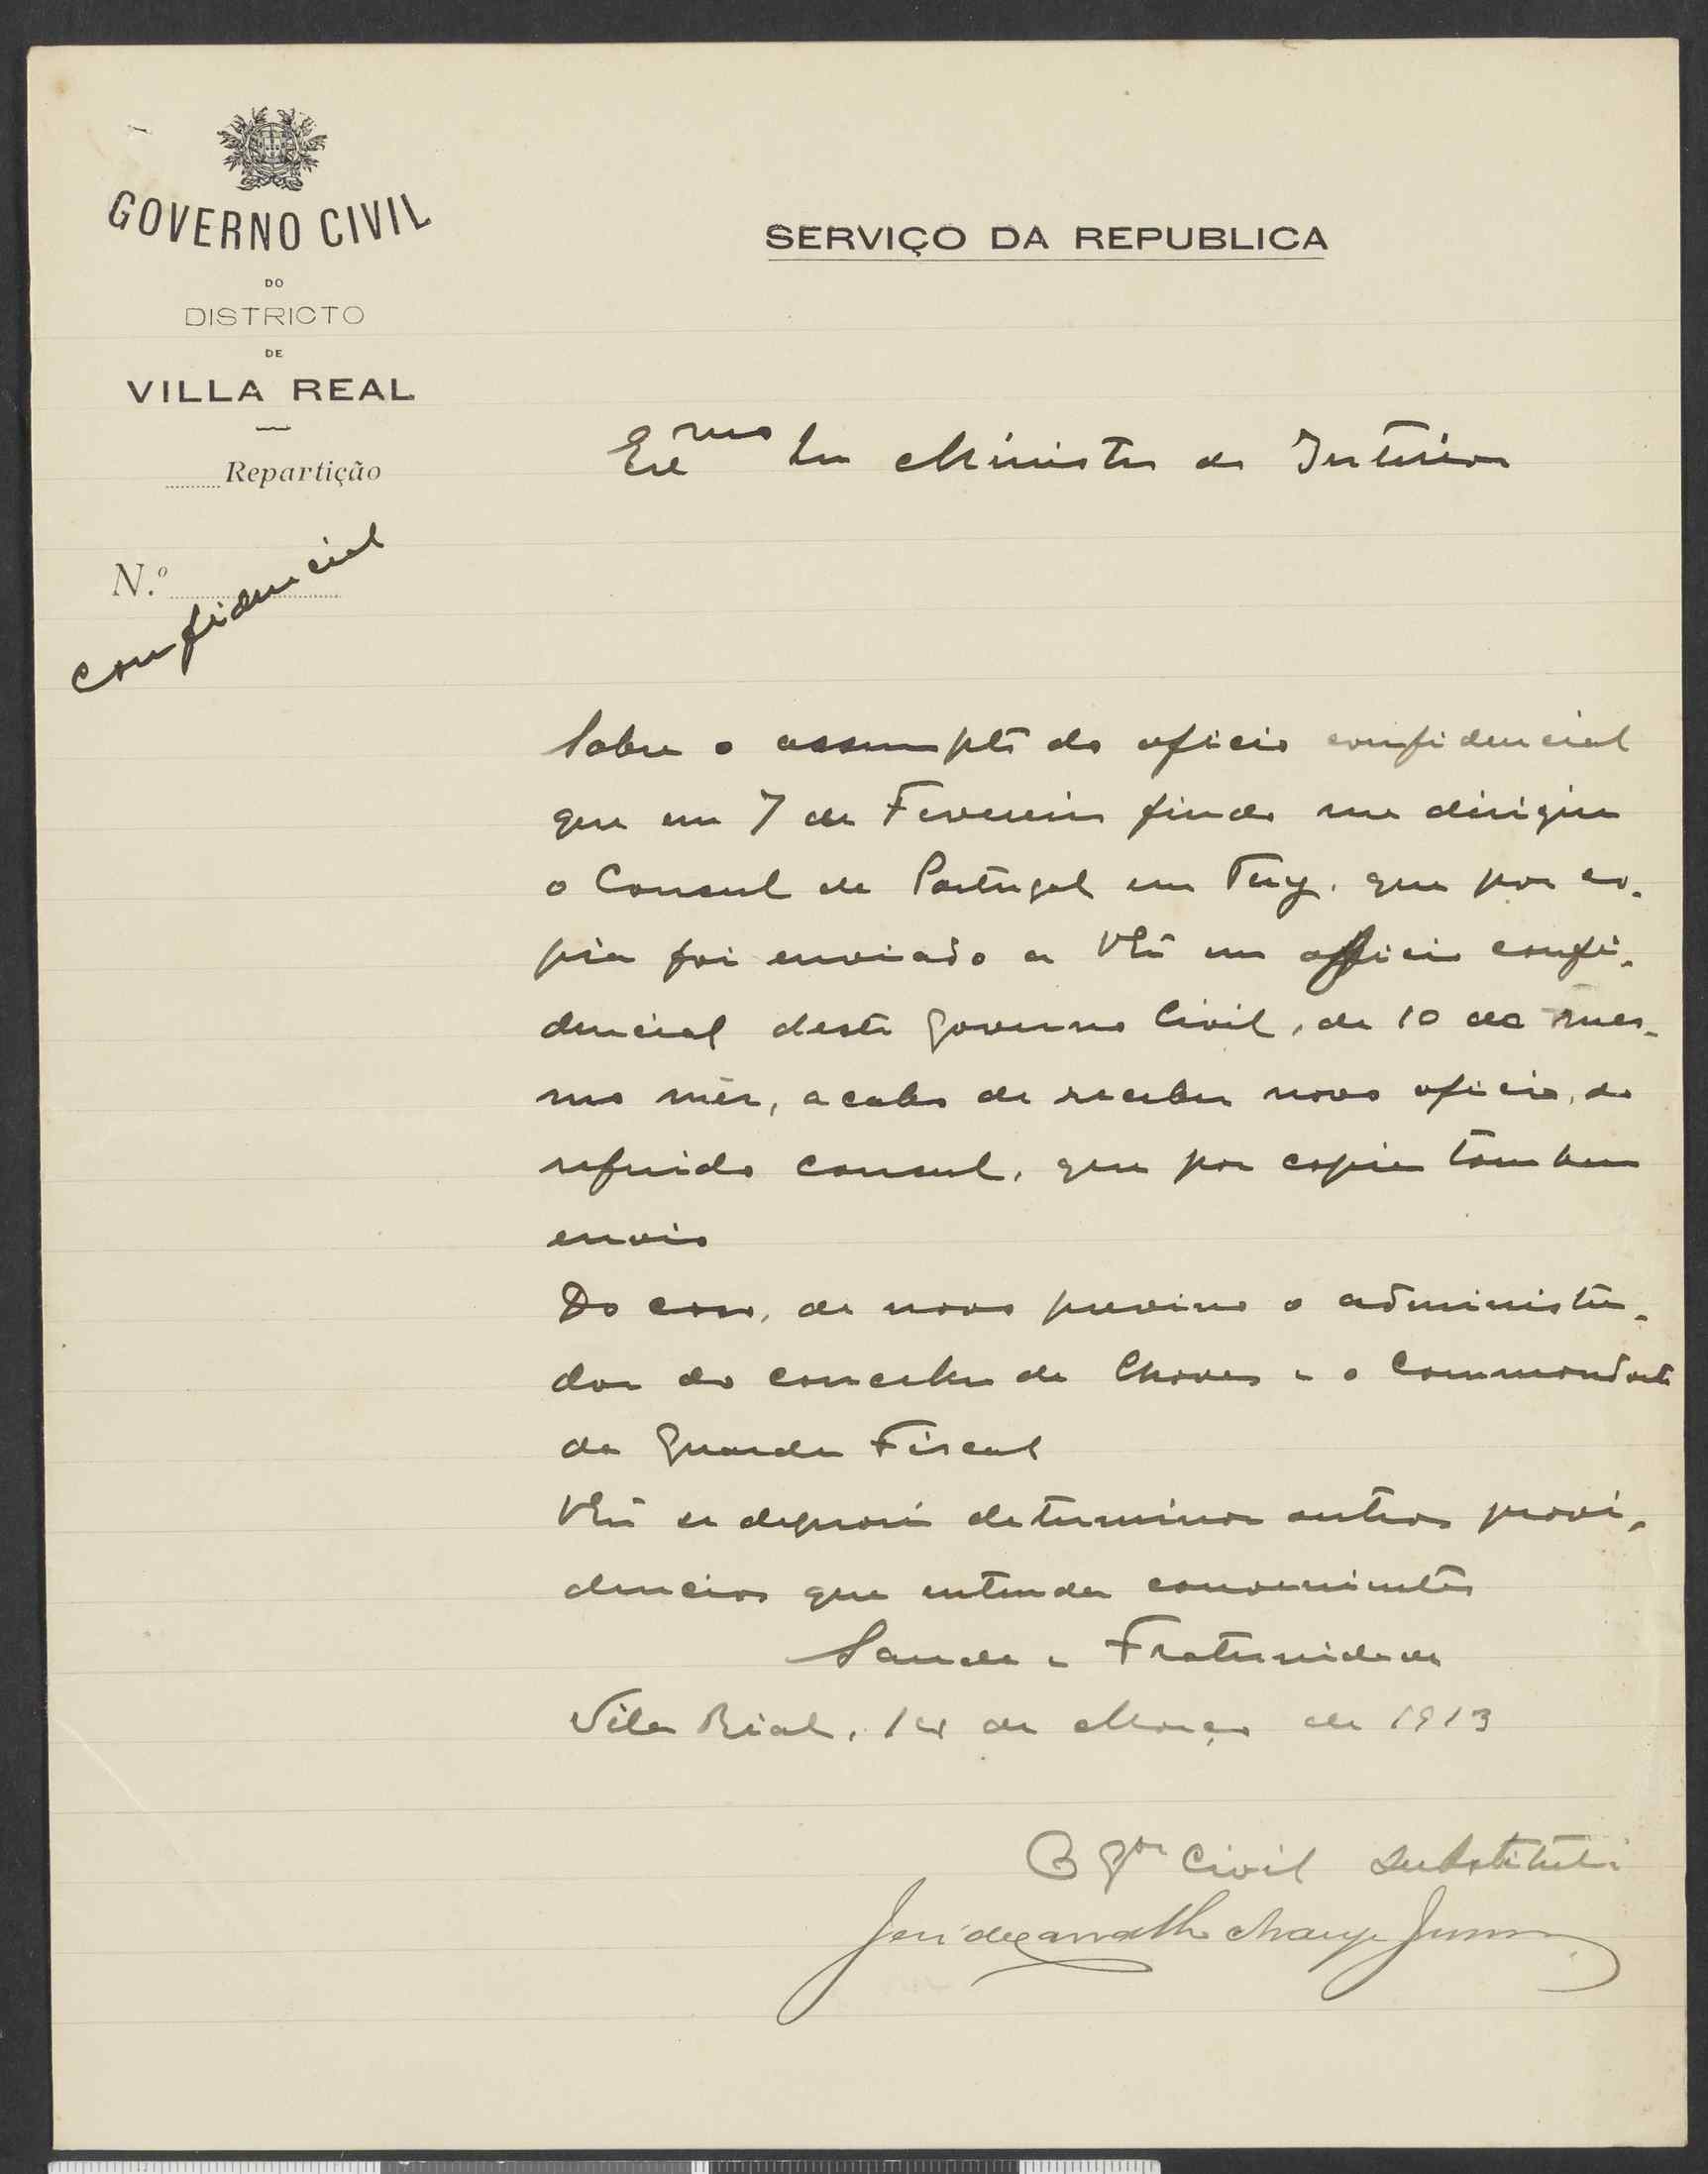 GOVERNO CIVIL
DO
DISTRICTO
DE
VILLA REAL
Repartição
N.º
confidencial
SERVIÇO DA REPUBLICA
Exmo Snr Ministro do Interior
Sobre o assumpto do oficio confidencial
que em 7 de Fevereiro findo me dirigiu
o Consul de Portugal em Tuy, que por co-
pia foi enviado a V Exa em officio confi-
dencial deste Governo Civil, de 10 do mes-
mo mês, acabo de receber novo oficio, do
referido consul, que por copia tambem
envio
Do caso, de novo previno o administra-
dor do concelho de Chaves e o Commandante
da Guarda Fiscal
V Exa se dignará determinar outras provi-
dencias que entender convenientes
Saude e Fraternidade
Vila Rial, 14 de Março de 1913
O Gor Civil Substituto
José de Carvalho Araujo Junior